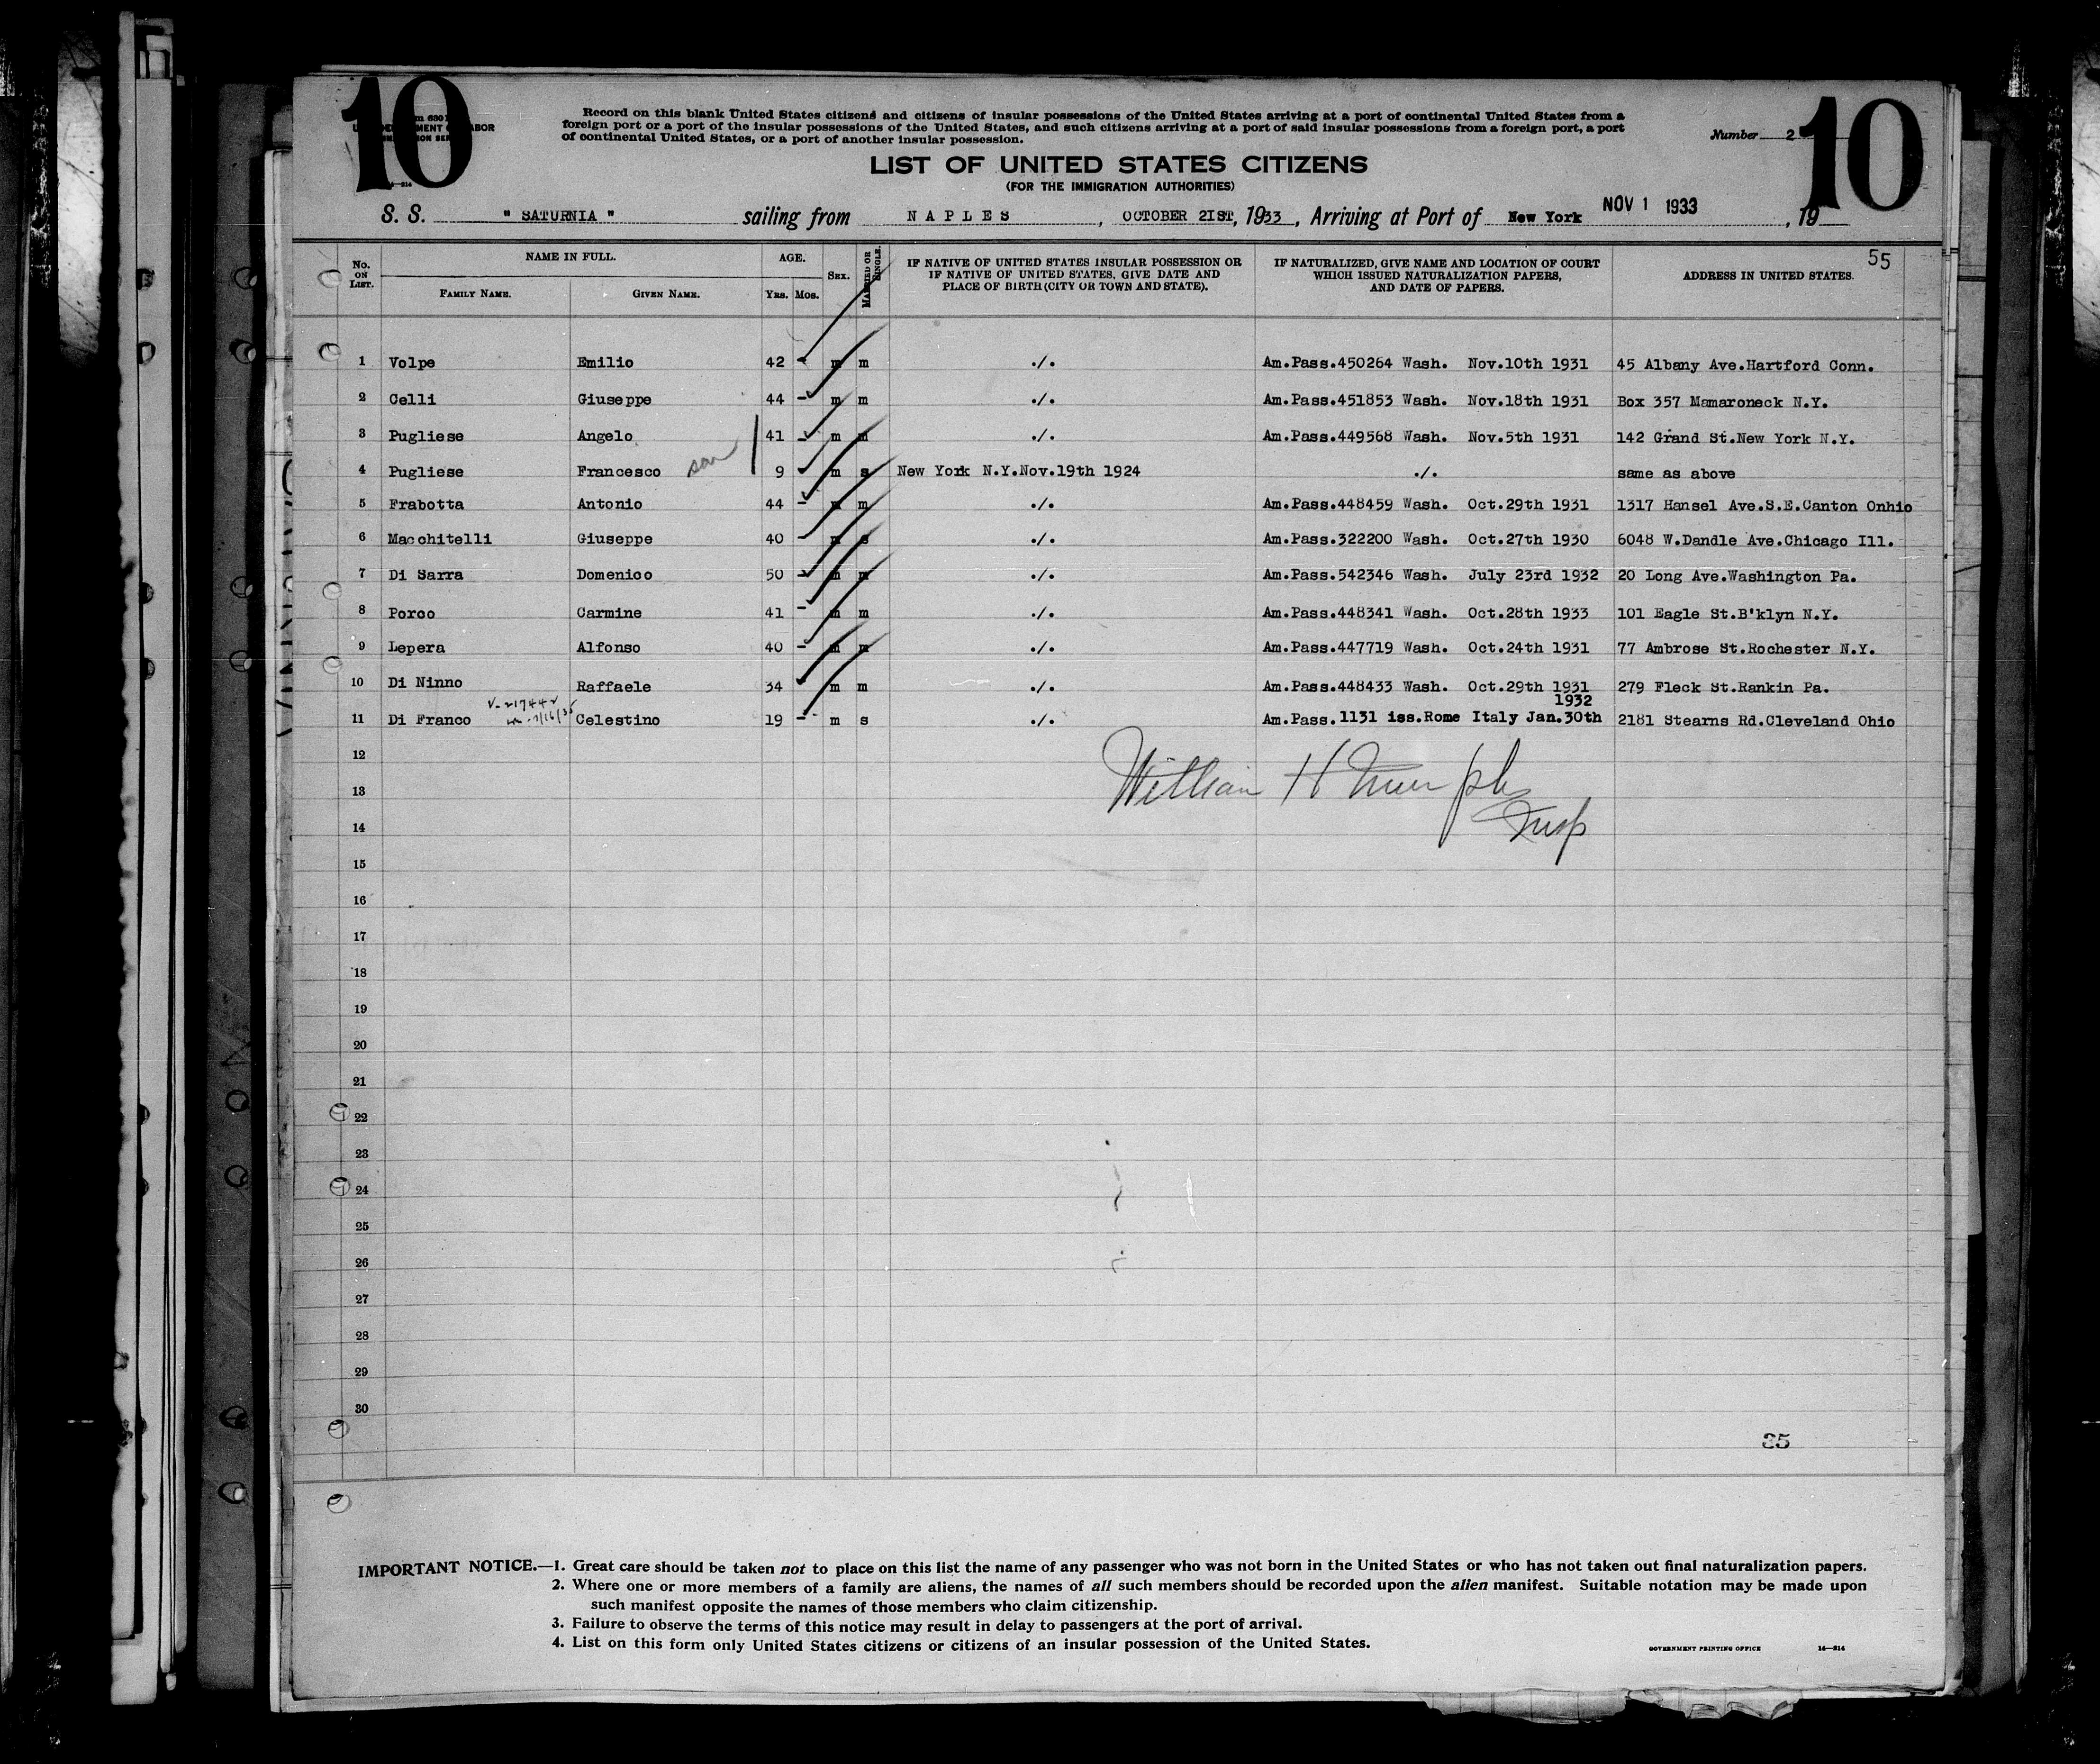 10
10
Record on this blank United States citizens and citizens of insular possessions of the United States arriving at a port of continental United States from a
foreign port or a port of the insular possessions of the United States, and such citizens arriving at a port of said insular possessions from a foreign port, a port
of continental United States, or a port of another insular possession.
Number 2
LIST OF UNITED STATES CITIZENS
(FOR THE IMMIGRATION AUTHORITIES)
S. S. " SATURNIA " sailing from NAPLES, OCTOBER 21ST, 1933, Arriving at Port of New York NOV 1 1933, 19
55
No. ON LIST. NAME IN FULL. FAMILY NAME. GIVEN NAME. AGE. YRS. MOS. SEX. MARRIED OR SINGLE. IF NATIVE OF UNITED STATES INSULAR POSSESSION OR IF NATIVE OF UNITED STATES, GIVE DATE AND PLACE OF BIRTH (CITY OR TOWN AND STATE). IF NATURALIZED, GIVE NAME AND LOCATION OF COURT WHICH ISSUED NATURALIZATION PAPERS, AND DATE OF PAPERS. ADDRESS IN UNITED STATES.
1 Volpe Emilio 42 - m m ./. Am.Pass.450264 Wash. Nov.10th 1931 45 Albany Ave.Hartford Conn.
2 Celli Giuseppe 44 - m m ./. Am.Pass.451853 Wash. Nov.18th 1931 Box 357 Mamaroneck N.Y.
3 Pugliese Angelo 41 - m m ./. Am.Pass.449568 Wash. Nov.5th 1931 142 Grand St.New York N.Y.
4 Pugliese Francesco son 9 m s New York N.Y.Nov.19th 1924 ./. same as above
5 Frabotta Antonio 44 - m m ./. Am.Pass.448459 Wash. Oct.29th 1931 1317 Hansel Ave.S.E.Canton Onhio
6 Macchitelli Giuseppe 40 - m s ./. Am.Pass.322200 Wash. Oct.27th 1930 6048 W.Dandle Ave.Chicago Ill.
7 Di Sarra Domenico 50 - m m ./. Am.Pass.542346 Wash. July 23rd 1932 20 Long Ave.Washington Pa.
8 Porco Carmine 41 - m m ./. Am.Pass.448341 Wash. Oct.28th 1933 101 Eagle St.B'klyn N.Y.
9 Lepera Alfonso 40 - m m ./. Am.Pass.447719 Wash. Oct.24th 1931 77 Ambrose St.Rochester N.Y.
10 Di Ninno Raffaele 34 m m ./. Am.Pass.448433 Wash. Oct.29th 1931 279 Fleck St.Rankin Pa.
1932
11 Di Franco Celestino 19 - m s ./. Am.Pass. 1131 iss.Rome Italy Jan.30th 2181 Stearns Rd.Cleveland Ohio
12
13
William H Murphy
14
Insp
15
16
17
18
19
20
21
22
23
24
25
26
27
28
29
30
35
IMPORTANT NOTICE.—1. Great care should be taken not to place on this list the name of any passenger who was not born in the United States or who has not taken out final naturalization papers.
2. Where one or more members of a family are aliens, the names of all such members should be recorded upon the alien manifest. Suitable notation may be made upon
such manifest opposite the names of those members who claim citizenship.
3. Failure to observe the terms of this notice may result in delay to passengers at the port of arrival.
4. List on this form only United States citizens or citizens of an insular possession of the United States.
GOVERNMENT PRINTING OFFICE 14—214